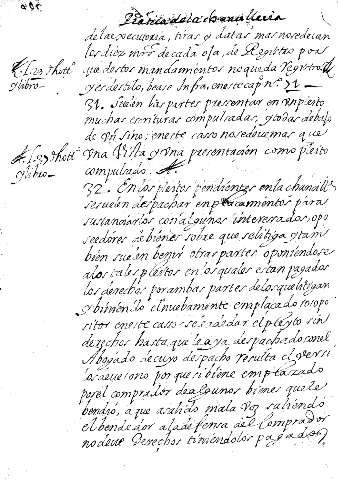 Pratica de la chancilleria
de la executoria, tiras y datas mas no se dexan
los diez mrs. de cada oja, de Registro por
que destos mandamientos no queda Registro
y es destilo, vease Infra, en este cap. n. 71
31. Suelen las partes presentar en un pleito
muchas escrituras compulsadas, y todas debajo
de un sino; en este caso no se deve mas que
una Vista y una presentacion como pleito
compulsado.
32. En los pleitos pendientes en la chancill.
se suelen despachar emplacamientos para
sustanciarlos con algunos interesados, o po
seedores de bienes sobre que se litiga y tam
bien suelen benir otras partes oponiendose
a los tales pleitos en los quales estan pagados
los derechos por ambas partes de los que litigan
y biniendo el nuebamente emplacado o sopo
sitor en este caso se le a de dar el pleyto sin
derechos hasta que le aya despachado con el
Abogado de cuyo despacho resulta el ver si
los deve o no por que si biene emplazado
por el comprador de algunos bienes que le
bendio, a que a salido mala voz saliendo
el bendedor a la defensa del comprador
no deve Derechos teniendolos pagados